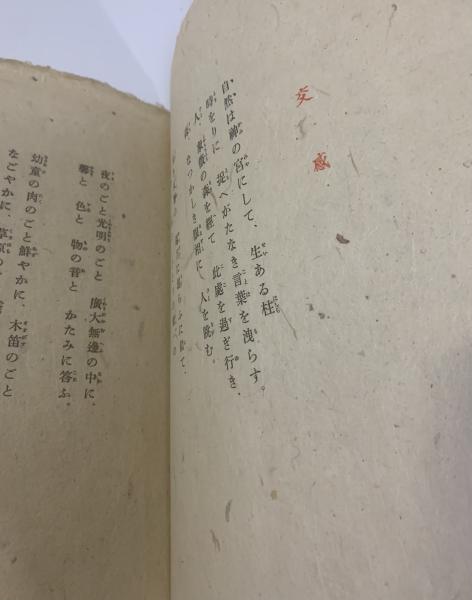 交感
自然は神の宮にして、生ある柱
時をりに 捉へがたなき言葉を洩らす。
人、象徴の森を經て 此處を過ぎ行き、
森、なつかしき眼相に 人を眺む。
夜のごと光明のごと 廣大無邊の中に、
馨と 色と 物の音と かたみに答ふ。
幼童の肉のごと鮮やかに、木笛のごと
なごやかに、草原